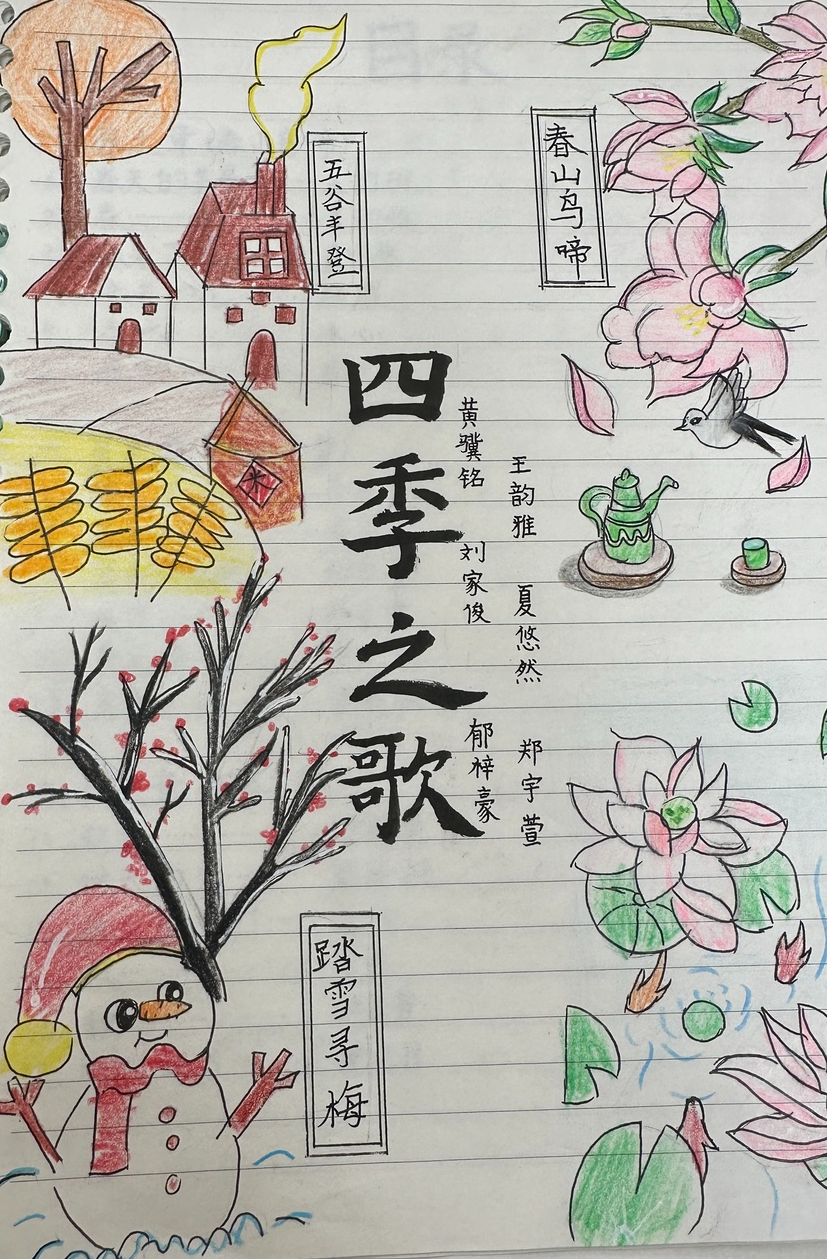 春山鸟啼
五谷丰登
四季之歌
黄骥铭 刘家俊 郁梓豪
王韵雅 夏悠然 郑宇萱
米
踏雪寻梅